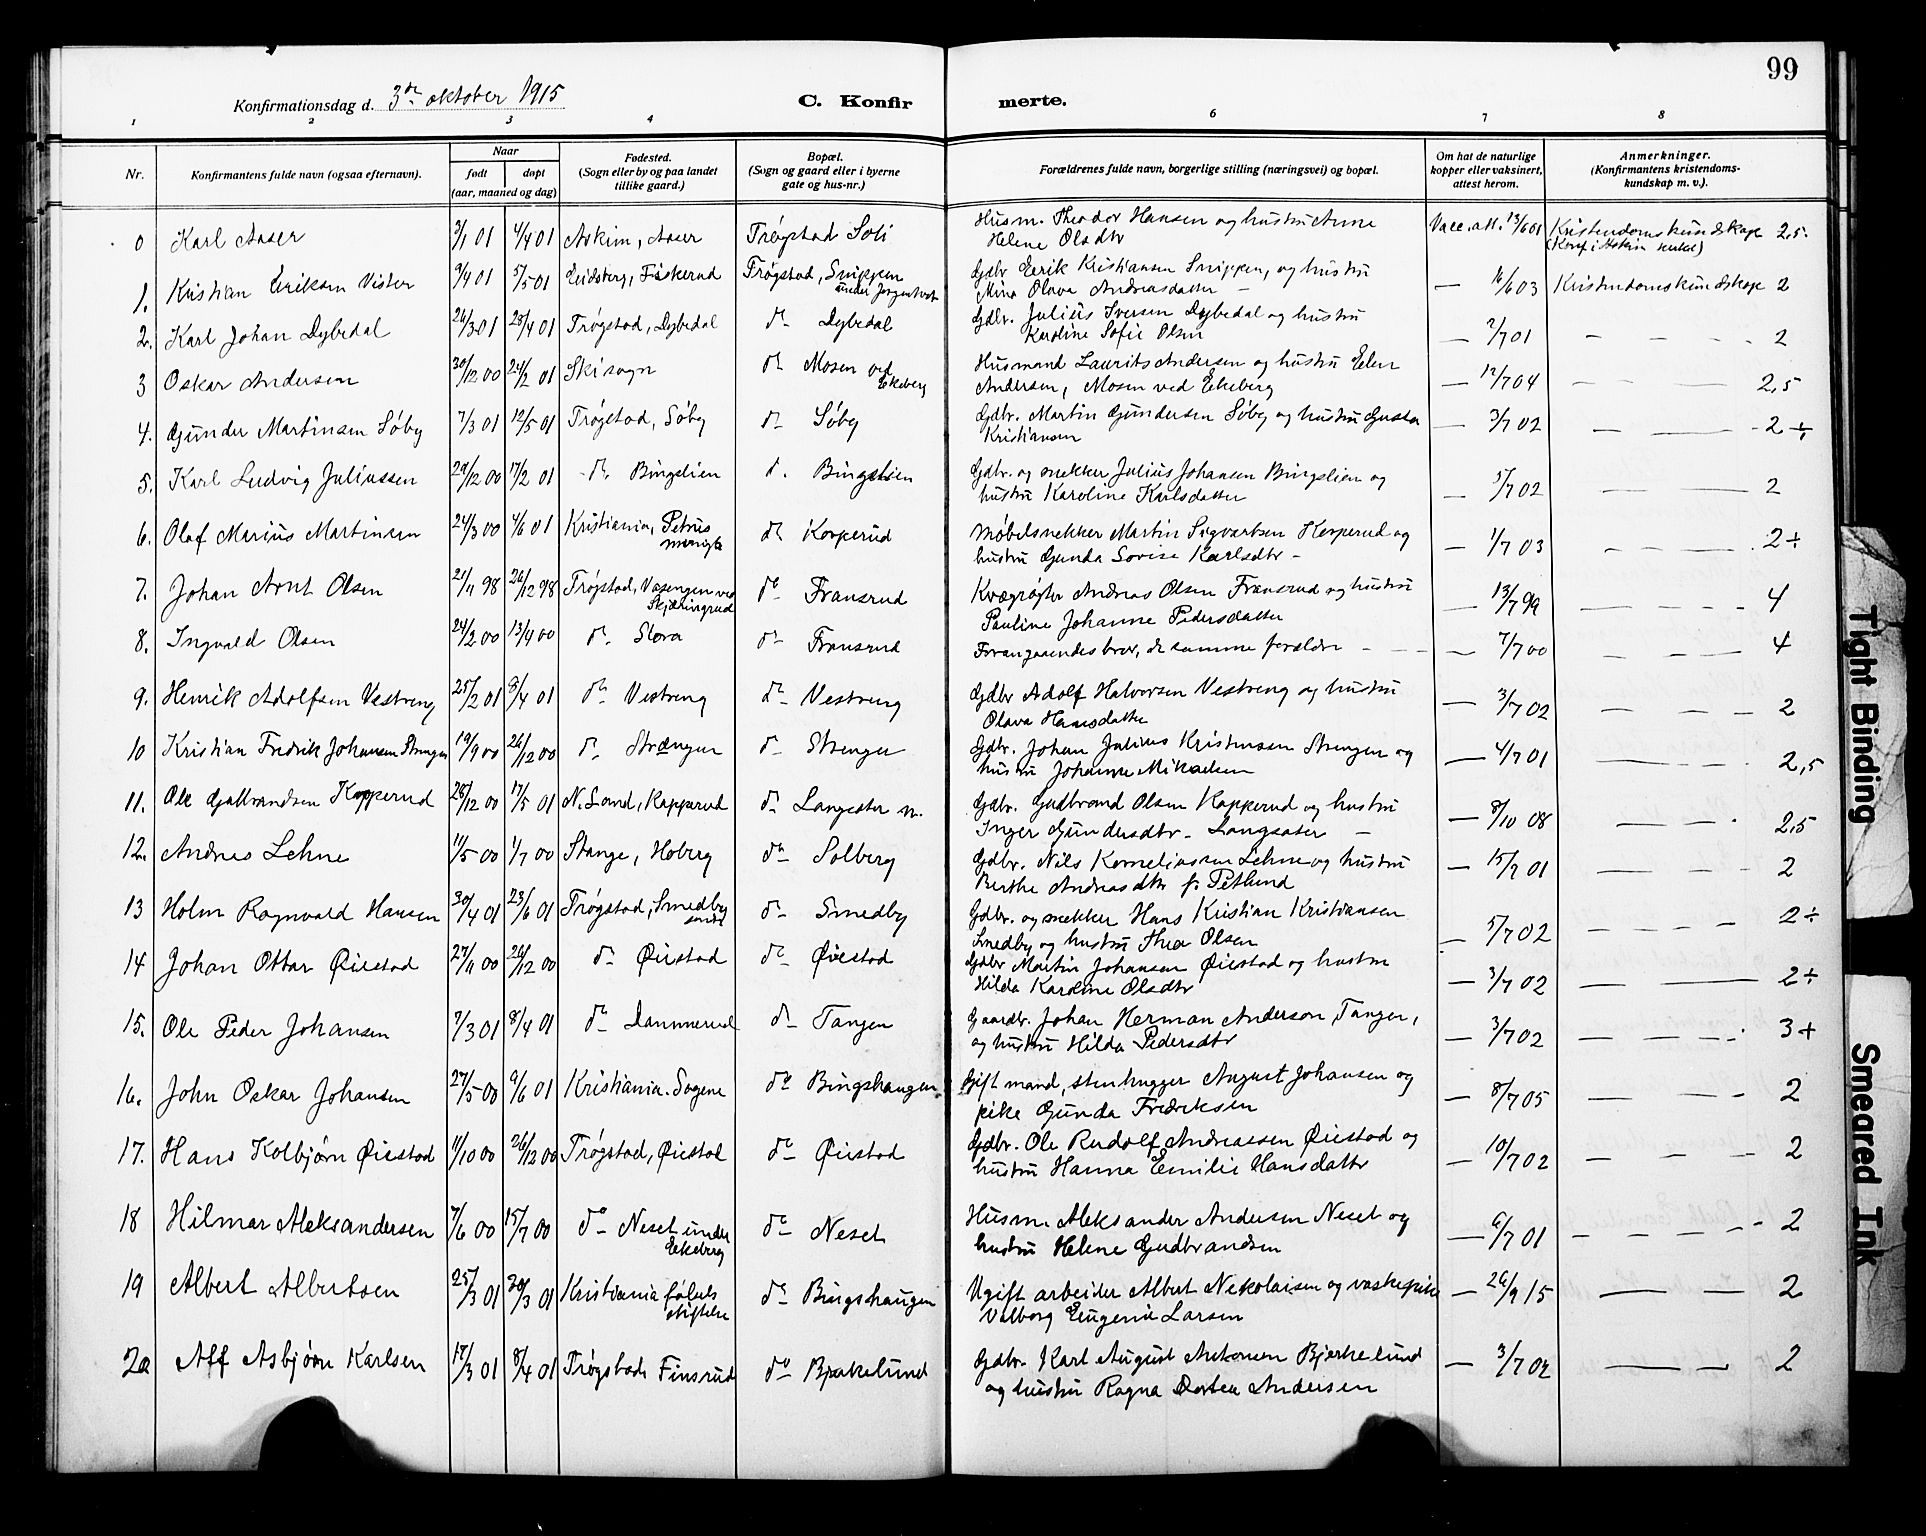 99
Konfirmationsdag d. 3die oktober 1915 C. Konfirmerte.
1 2 3 4 6 7 8
Nr. Konfirmantens fulde navn (ogsaa efternavn). Naar født døpt (aar, maaned og dag) Fødested. (Sogn eller by og paa landet tillike gaard.) Bopæl. (Sogn og gaard eller i byerne gate og hus-nr.) Forældrenes fulde navn, borgerlige stilling (næringsvei) og bopæl. Om hat de naturlige kopper eller vaksinert, attest herom. Anmerkninger. (Konfirmantens kristendomskundskap m. v.).
0 Karl Aaser 3/1 01 4/4 01 Askim, Aaser Trøgstad Soli Husm. Theodor Hansen og hustru Anne Vacc. att. 13/6 01 Kristendomskundskap 2,5
Helene Olsdtr (Konf i Askim kirke)
1. Kristian Eriksen Vister 9/4 01 5/5 01 Eidsberg, Fiskerud Trøgstad, Snippen Gdbr Eerik Kristiansen Snippen, og hustru — 16/6 03 Kristendomskundskap 2
under Jørgentvedt Mina Olava Andreasdatter —
2. Karl Johan Dybedal 26/3 01 28/4 01 Trøgstad, Dybedal do Dybedal Gdbr. Julius Iversen Dybedal og hustru — 2/7 01 — — — 2
Karoline Sofie Olsen
3 Oskar Andersen 30/12 00 24/2 01 Ski sogn do Mosen ved Husmand Laurits Andersen og hustru Elen — 12/7 04 — — — 2,5
Ekeberg Andersen, Mosen ved Ekeberg
4. Gunder Martinsen Søby 7/3 01 12/5 01 Trøgstad, Søby do Søby Gdbr. Martin Gundersen Søby og hustru Gusta — 3/7 02 — — 2÷
Kristiansen
5. Karl Ludvig Juliussen 29/12 00 17/2 01 do Bingslien d. Bingslien Gdbr. og snekker Julius Johansen Bingslien og — 5/7 02 — — 2
hustru Karoline Karlsdatter
6. Olaf Marius Martinsen 24/3 00 4/6 01 Kristiania, Petrus do Korperud Møbelsnekker Martin Sigvartsen Korperud og — 1/7 03 — — — 2÷
menigh hustru Gunda Lovise Karlsdtr —
7. Johan Arnt Olsen 21/11 98 26/12 98 Trøgstad, Vasengen ved do Fransrud Kvægrøgter Andreas Olsen Fransrud og hustru — 13/7 99 — — — 4
Skjæringrud Pauline Johanne Pedersdatter
8. Ingvald Olsen 24/2 00 13/4 00 do Slora do Fransrud Forangaaendes bror, de samme forældre — — 7/7 00 — — — 4
9. Henrik Adolfsen Vestreng 25/2 01 8/4 01 do Vestreng do Vestreng Gdbr Adolf Halvorsen Vestreng og hustru — 3/7 02 — — — 2
Olava Hansdatter
10 Kristian Fredrik Johansen Strenger 19/9 00 26/12 00 do Strænger do Strenger Gdbr. Johan Julius Kristensen Strenger og — 4/7 01 — — — 2,5
hustru Johanne Mikaelsen
11. Ole Gulbrandsen Kopperud 28/12 00 17/5 01 N. Land, Kopperud do Langsæter n. Gdbr. Gudbrand Olsen Kopperud og hustru — 8/10 08 — — 2,5
Inger Gundersdtr. Langsæter —
12. Andreas Lehne 11/5 00 1/7 00 Stange, Hoberg do Solberg Gdbr. Nils Korneliussen Lehne og hustru — 15/7 01 — — — 2
Berthe Andreasdtr f. Petlund
13 Holm Ragnvald Hansen 30/4 01 23/6 01 Trøgstad, Smedby do Smedby Gdbr. og snekker Hans Kristian Kristiansen — 5/7 02 — — — — 2÷
søndre Smedby og hustru Thea Olsen
14 Johan Ottar Øiestad 27/11 00 26/12 00 do Øiestad do Øiestad Gdbr Martin Johansen Øiestad og hustru — 3/7 02 — — 2÷
Hilda Karoline Olsdtr
15. Ole Peder Johansen 7/3 01 8/4 01 do Dammerud do Tangen Gaardbr. Johan Herman Anderson, Tangen, — 3/7 02 — — — 3+
og hustru Hilda Pedersdtr
16. John Oskar Johansen 27/5 00 9/6 01 Kristiania. Sagene do Bingshaugen Gift mand, stenhugger August Johansen og — 8/7 05 — — — 2
pike Gunda Fredriksen
17. Hans Kolbjørn Øiestad 11/10 00 26/12 00 Trøgstad, Øiestad do Øiestad Gdbr. Ole Rudolf Andreassen Øiestad og — 10/7 02 — — — 2
hustru Hanna Emilie Hansdatter
18 Hilmar Aleksandersen 7/6 00 15/7 00 do Neset under do Neset Husm. Aleksander Andersen Neset og — 6/7 01 — — — 2
Ekeberg hustru Helene Gudbrandsen
19 Albert Albertsen 25/3 01 30/3 01 Kristiania fødsels do Bingshaugen Ugift arbeider Albert Nekolaisen og vaskepike — 26/9 15 — — 2
stiftelse Valborg Eugenie Larsen
20 Alf Asbjørn Karlsen 17/3 01 8/4 01 Trøgstad, Finsrud do Bjerkelund Gdbr. Karl August Antonsen Bjerkelund — 3/7 02 — — 2
og hustru Ragna Dortea Andersen
Tight Binding
Smeared Ink